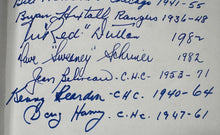 Chicago 1941-55
Bryan Hextall Rangers 1936-48
"Red" Dutton 1982
Dave "Sweeney" Schriner 1982
Jean Beliveau C.H.C. 1953-71
Kenny Reardon C.H.C. 1940-64
Doug Harvey C.H.C. 1947-61